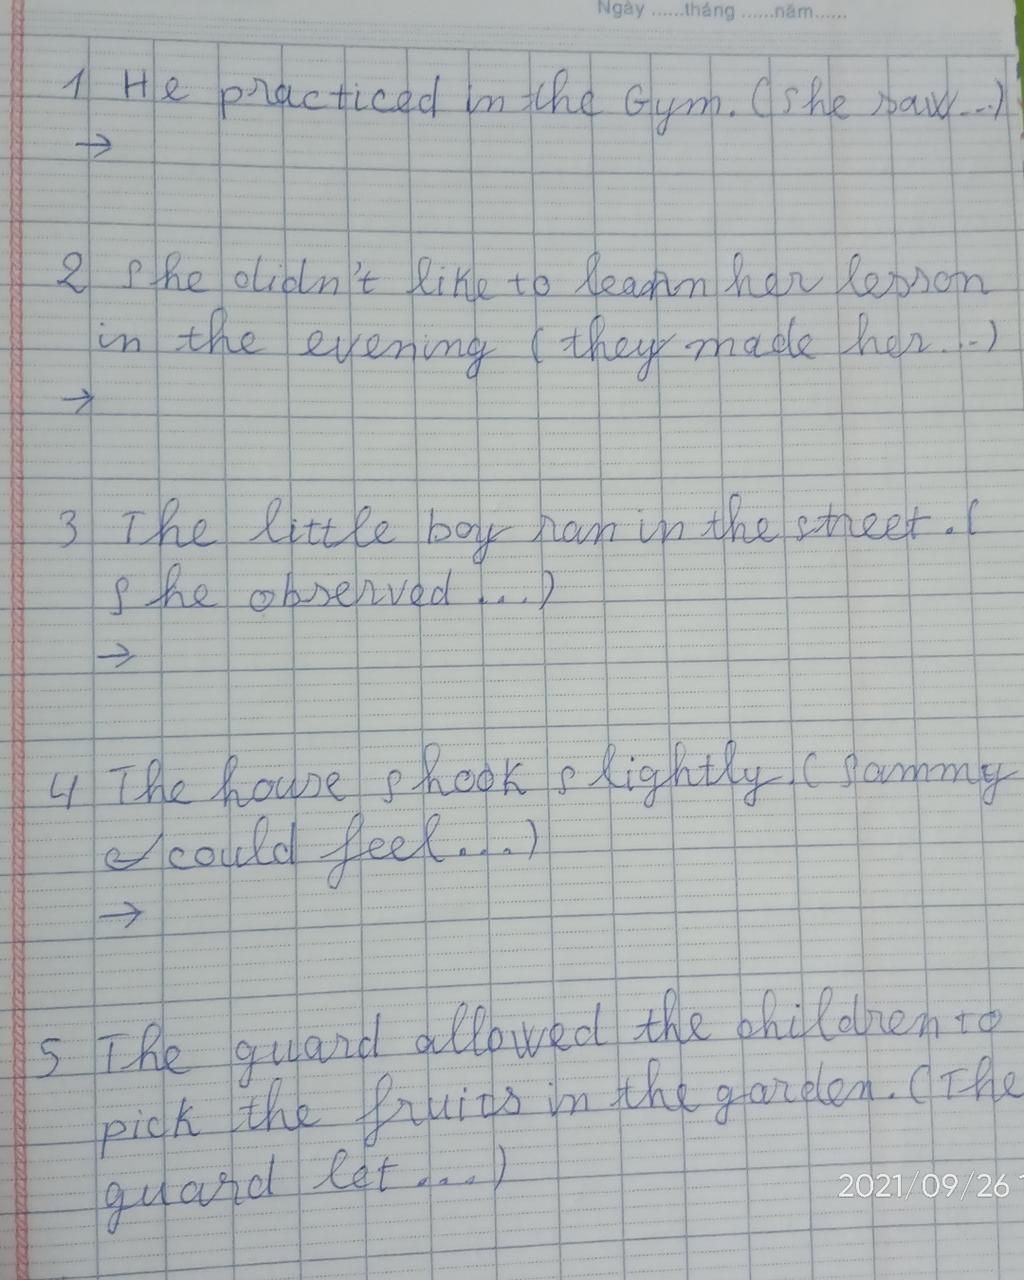 Ngày ......tháng ......năm......
1 He practiced in the Gym. (She saw...)
→
2 She didn't like to learn her lesson
in the evening (they made her...)
→
3 The little boy ran in the street. (
She observed ...)
→
4 The house shook slightly. (Sammy
could feel....)
→
5 The guard allowed the children to
pick the fruits in the garden. (The
guard let ....)
2021/09/26 1